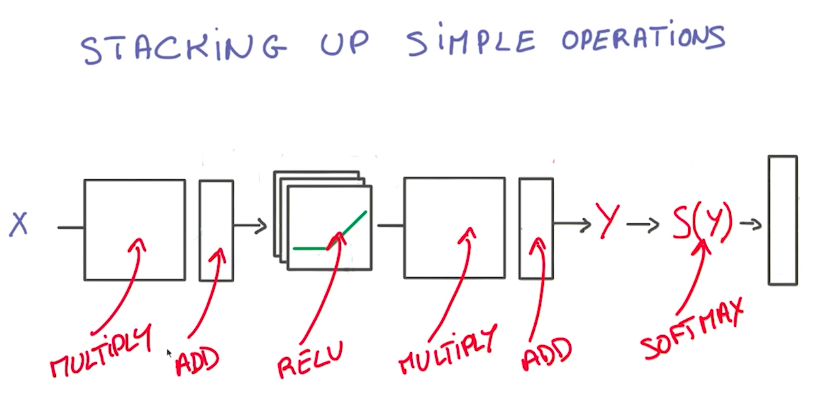 STACKING UP SIMPLE OPERATIONS
X
Y
S(Y)
MULTIPLY
ADD
RELU
MULTIPLY
ADD
SOFTMAX